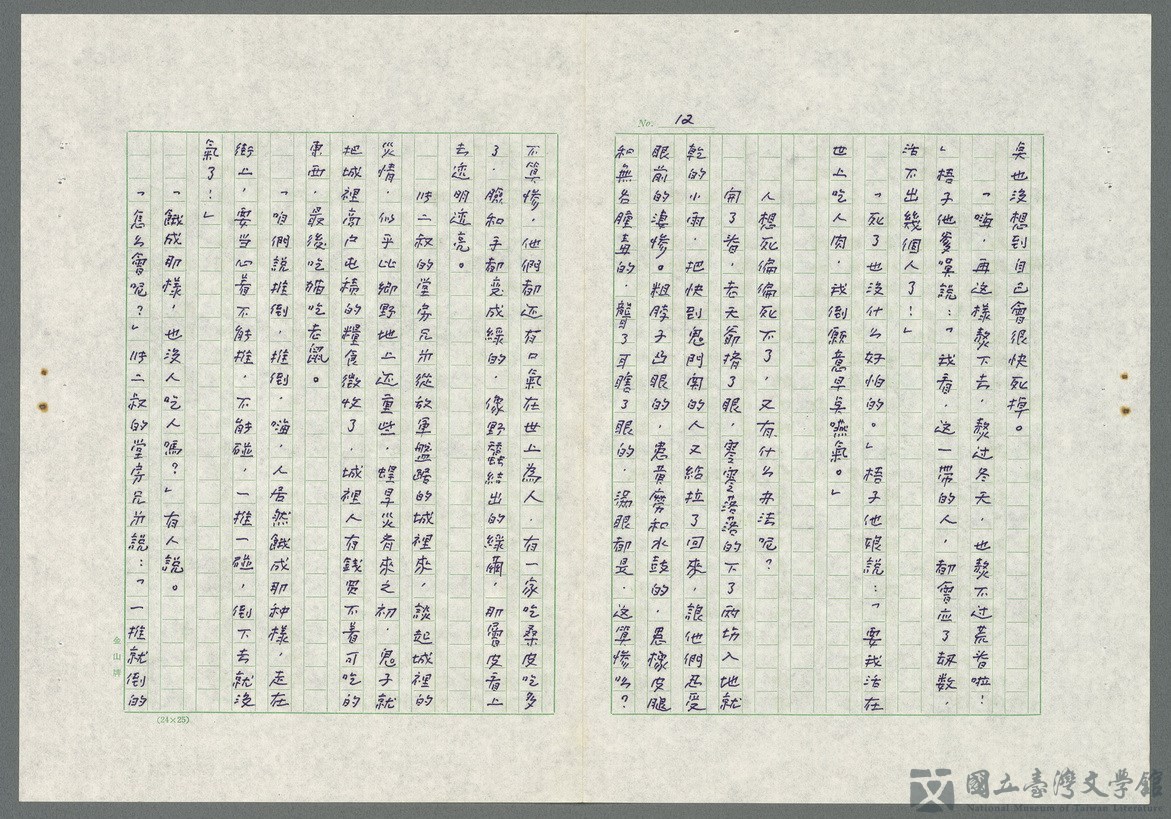 No. 12
臭也沒想到自己會很快死掉。
「嗨，再這樣熬下去，熬过冬天，也熬不过荒旹啦！
」梧子他爹嘆說：「我看，这一带的人，都會应了刼数，
活不出幾個人了！」
「死了也沒什么好怕的。」梧子他娘說：「要我活在
世上吃人肉，我倒願意早臭嚥氣。」
人想死偏偏死不了，又有什么办法呢？
開了旹，老天爺揹了眼，零零落落的下了兩坊入地就
乾的小雨，把快到鬼門関的人又給拉了回來，讓他們忍受
眼前的淒慘。粗脖子凸眼的，患黄癆和水鼓的，患橡皮腿
和無名腫毒的，聾了耳瞎了眼的，滿眼都是，这算慘么？
不算慘，他們都还有口氣在世上為人，有一家吃桑皮吃多
了，臉和手都变成綠的，像野蠶結出的綠繭，那層皮看上
去透明透亮。
時二叔的堂房兄弟從敌軍盤踞的城裡來，談起城裡的
災情，似乎比鄉野地上还重些，蝗旱災有來之初，鬼子就
把城裡高户屯積的糧食徵收了，城裡人有錢買不着可吃的
東西，最後吃猫吃老鼠。
「咱們說推倒，推倒，嗨，人居然餓成那种樣，走在
街上，要当心着不能推，不能碰，一推一碰，倒下去就沒
氣了！」
「餓成那樣，也沒人吃人嗎？」有人說。
「怎么會呢？」時二叔的堂房兄弟說：「一推就倒的
金山牌
(24×25)
國立臺灣文學館
National Museum of Taiwan Literature